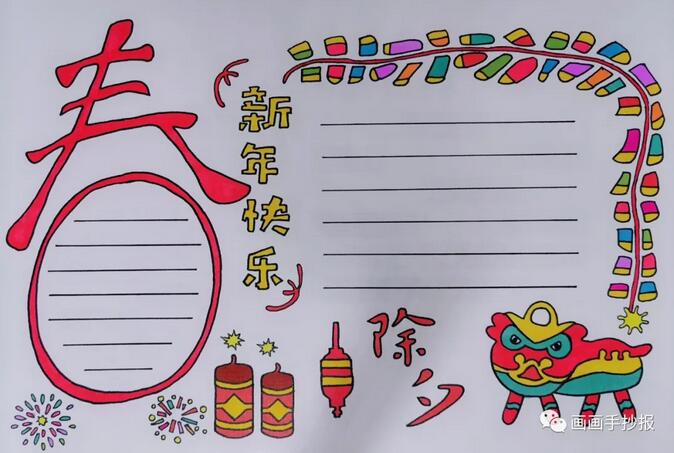 春
新年快乐
除夕
画画手抄报